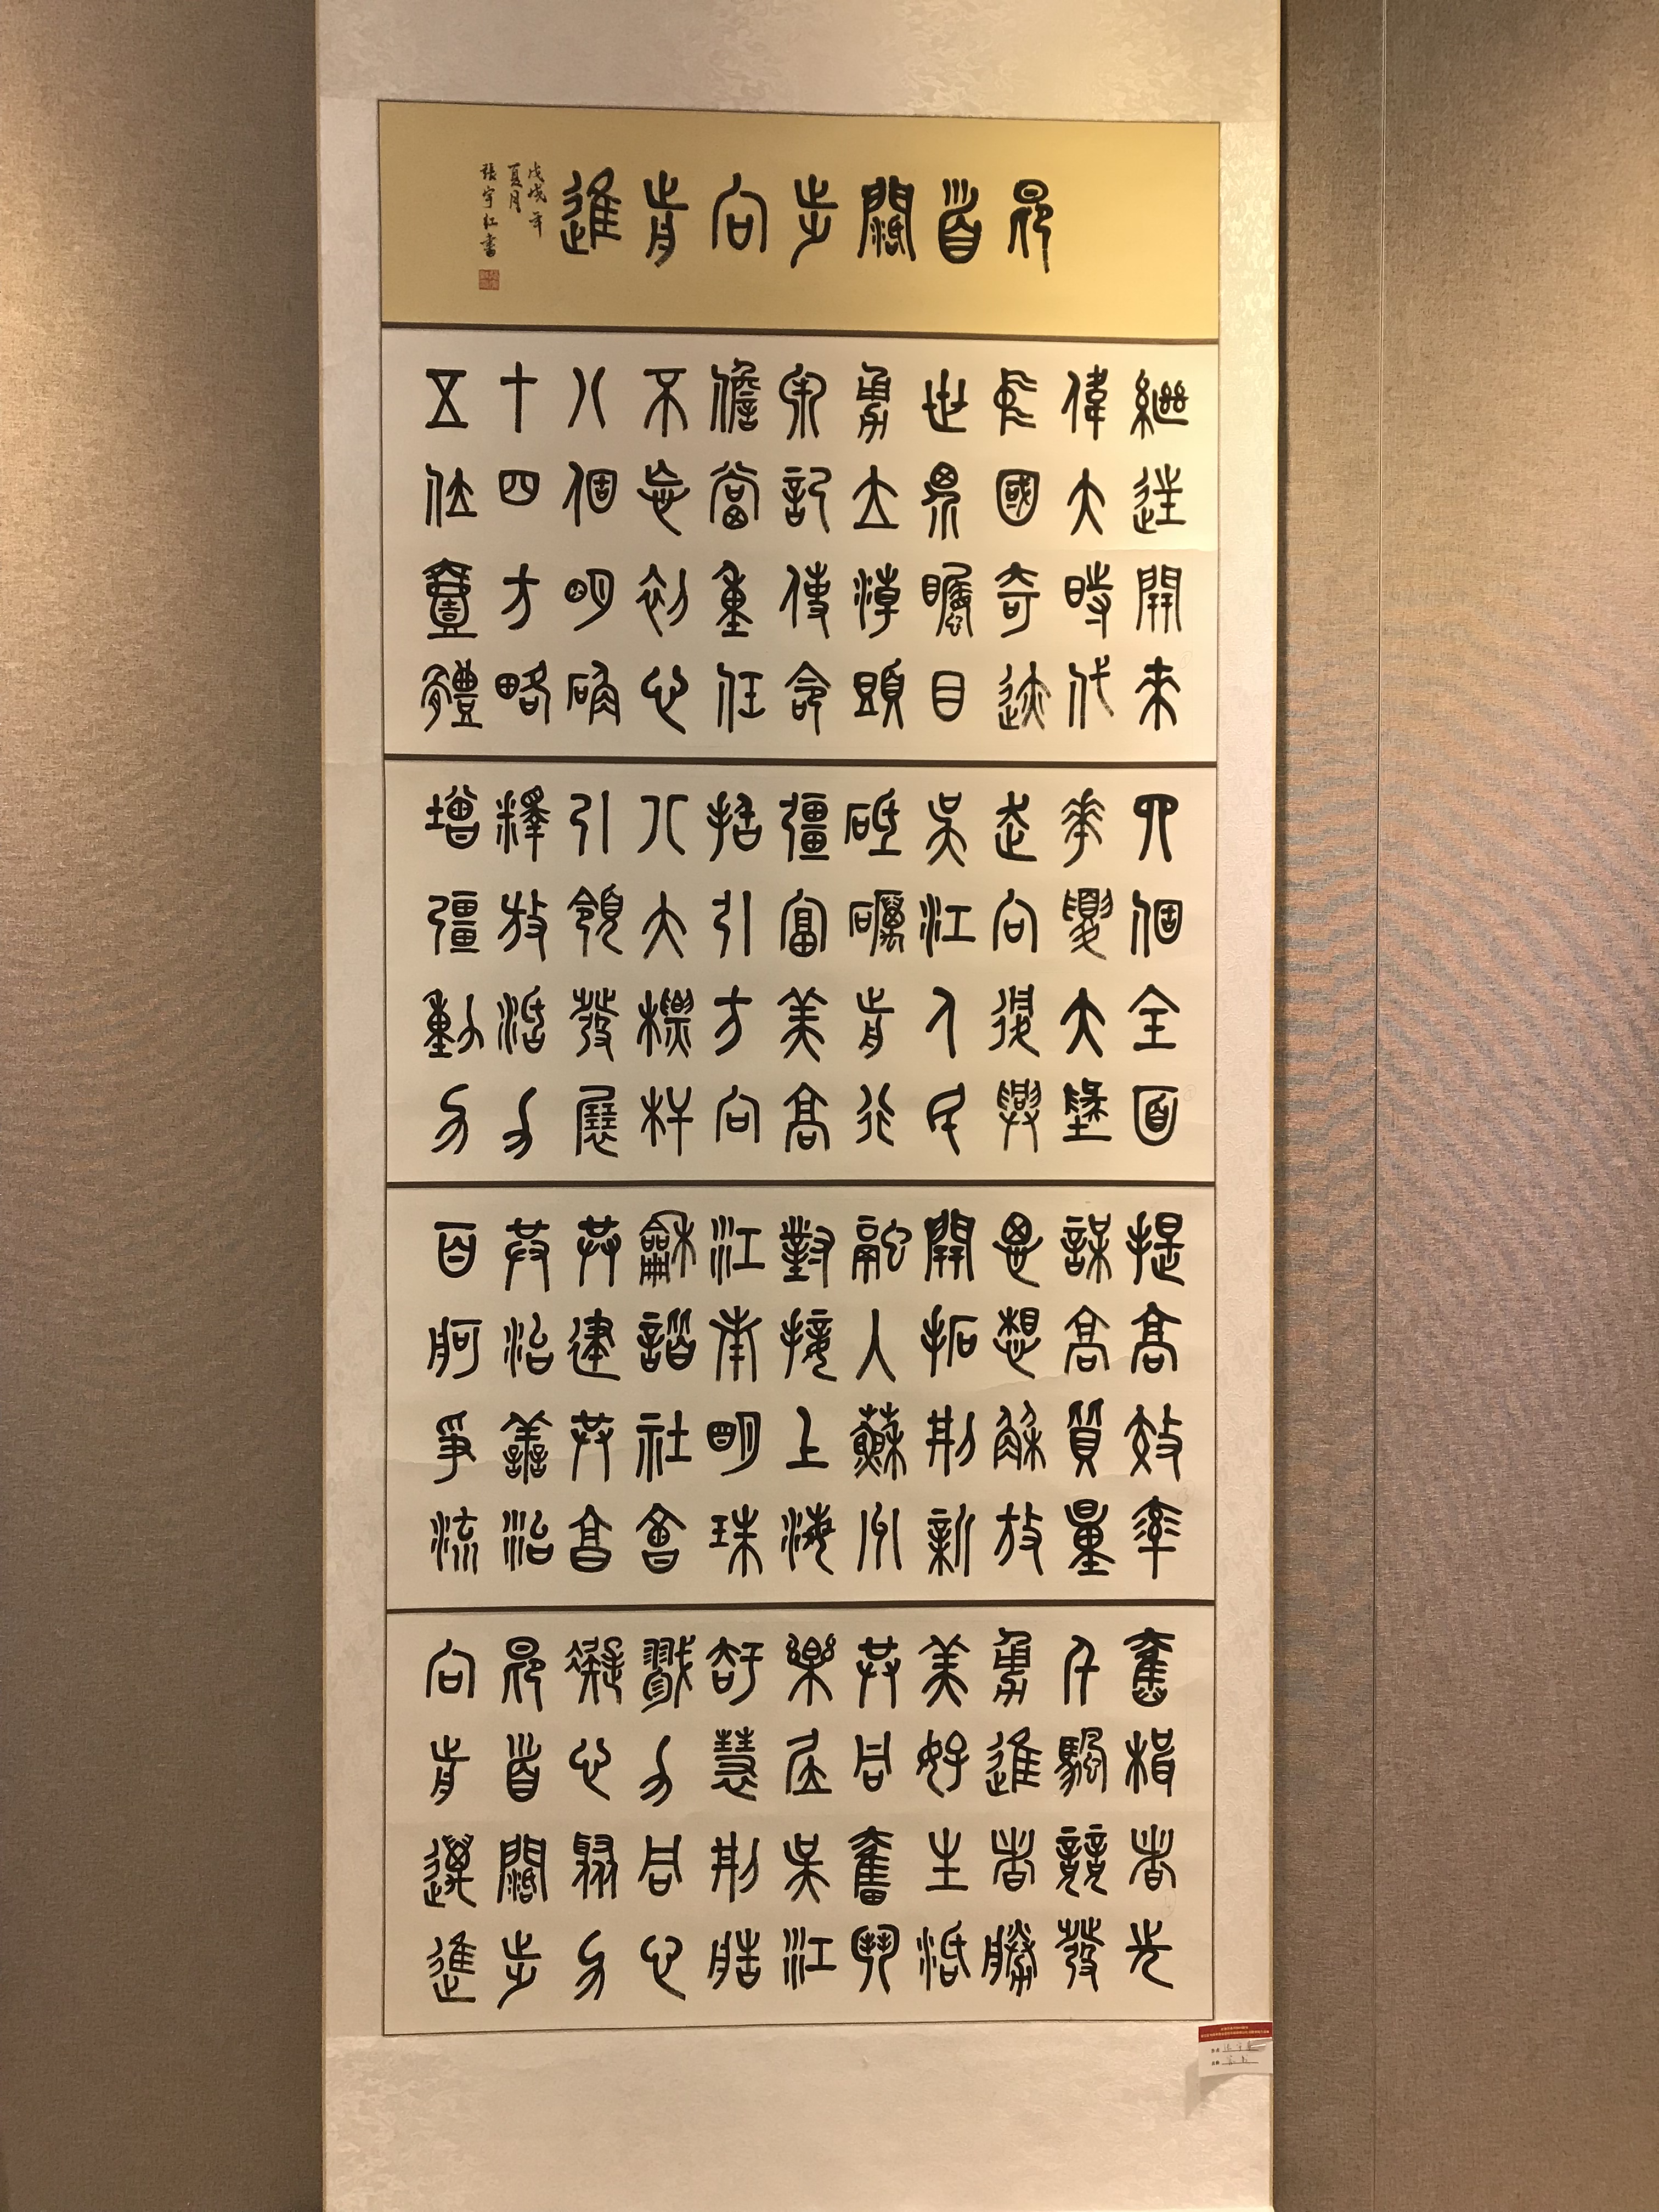 昂首闊步向前進
戊戌年
夏月
張宇紅書
繼往開來
偉大時代
國奇迹
世界矚目
勇立潮頭
牢記使命
擔當重任
不忘初心
八個明確
十四方略
五位壹體
四個全面
華夏大地
走向復興
吳江人民
砥礪前行
彊富美高
指引方向
八大標杆
引領發展
釋放活力
增彊動力
提高效率
謀高質量
思想解放
開拓創新
融入蘇州
對接上海
江南明珠
龢諧社會
共建共享
共治善治
百舸爭流
奮楫者先
千帆競發
勇進者勝
美好生活
共同奮鬥
樂居吳江
智慧創造
戮力同心
凝心聚力
昂首闊步
向前邁進